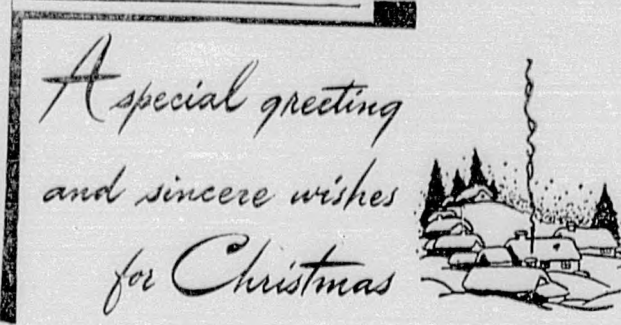 A special greeting
and sincere wishes
for Christmas